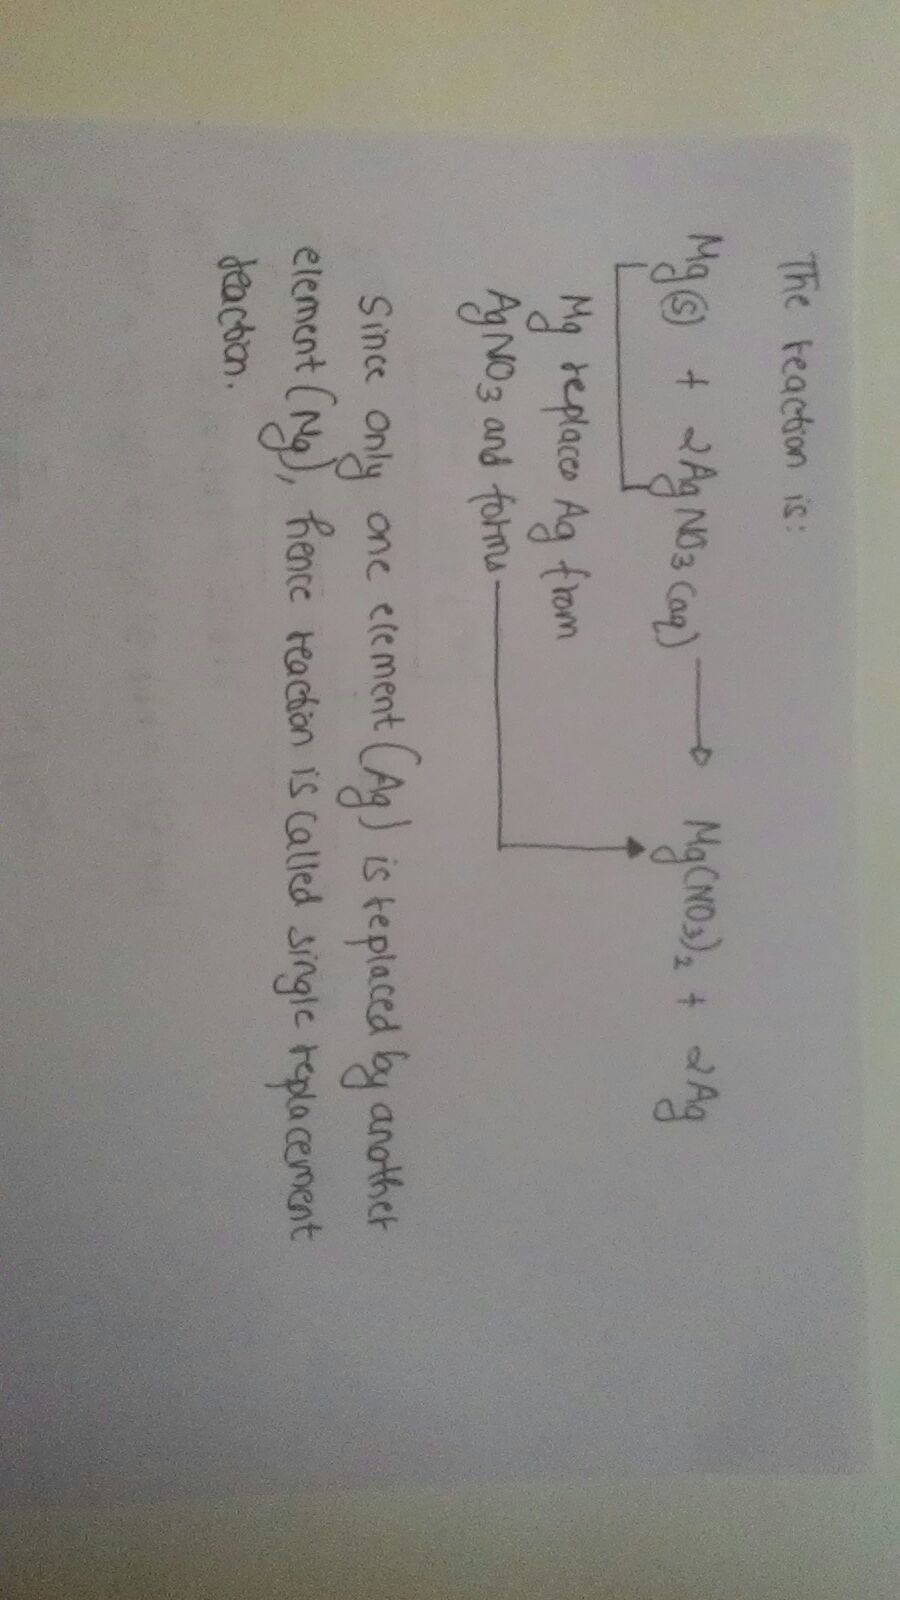 The reaction is:
Mg(s) + 2AgNO3(aq) → Mg(NO3)2 + 2Ag
Mg replaces Ag from
AgNO3 and forms
Since only one element (Ag) is replaced by another
element (Mg), hence reaction is called single replacement
reaction.